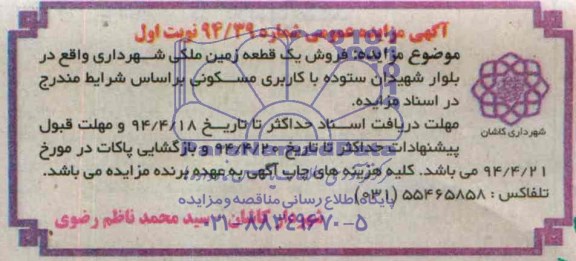 آگهی مزایده عمومی شماره ۹۴/۳۹ نوبت اول
موضوع مزایده: فروش یک قطعه زمین ملکی شهرداری واقع در
بلوار شهیدان ستوده با کاربری مسکونی براساس شرایط مندرج
در اسناد مزایده.
شهرداری کاشان
مهلت دریافت اسناد حداکثر تا تاریخ ۹۴/۴/۱۸ و مهلت قبول
پیشنهادات حداکثر تا تاریخ ۹۴/۴/۲۰ و بازگشایی پاکات در مورخ
۹۴/۴/۲۱ می باشد. کلیه هزینه های چاپ آگهی به عهده برنده مزایده می باشد.
تلفاکس : ۵۵۴۶۵۸۵۸ (۰۳۱)
پایگاه اطلاع رسانی مناقصه و مزایده
شهردار کاشان - سید محمد ناظم رضوی
۰۲۱-۸۸۳۴۹۶۷۰-۵